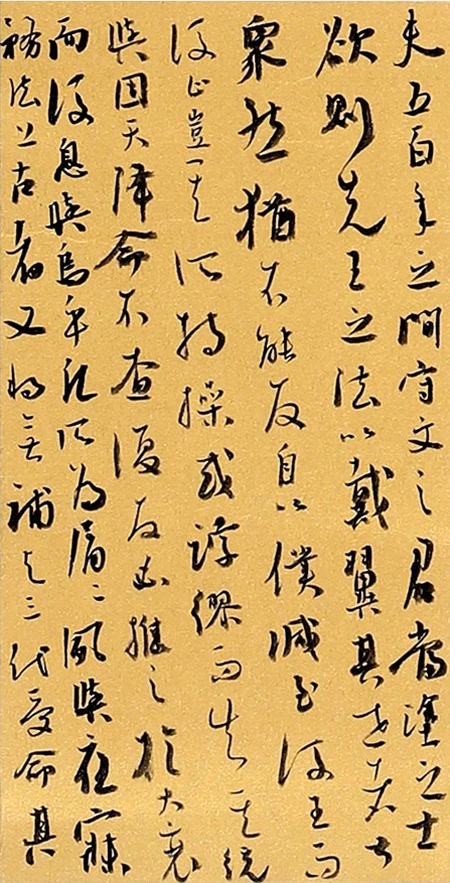 夫五百年之間守文之君當塗之士
欲則先王之法以戴翼其世者甚
眾然猶不能反自以僕滅至後王而
後止豈其所持操或誖繆而失其統
與固天降命不查復反必推之於大衰
而後息與烏乎凡所為屑〻夙興夜寐
務法上古者又將無補與三代受命其